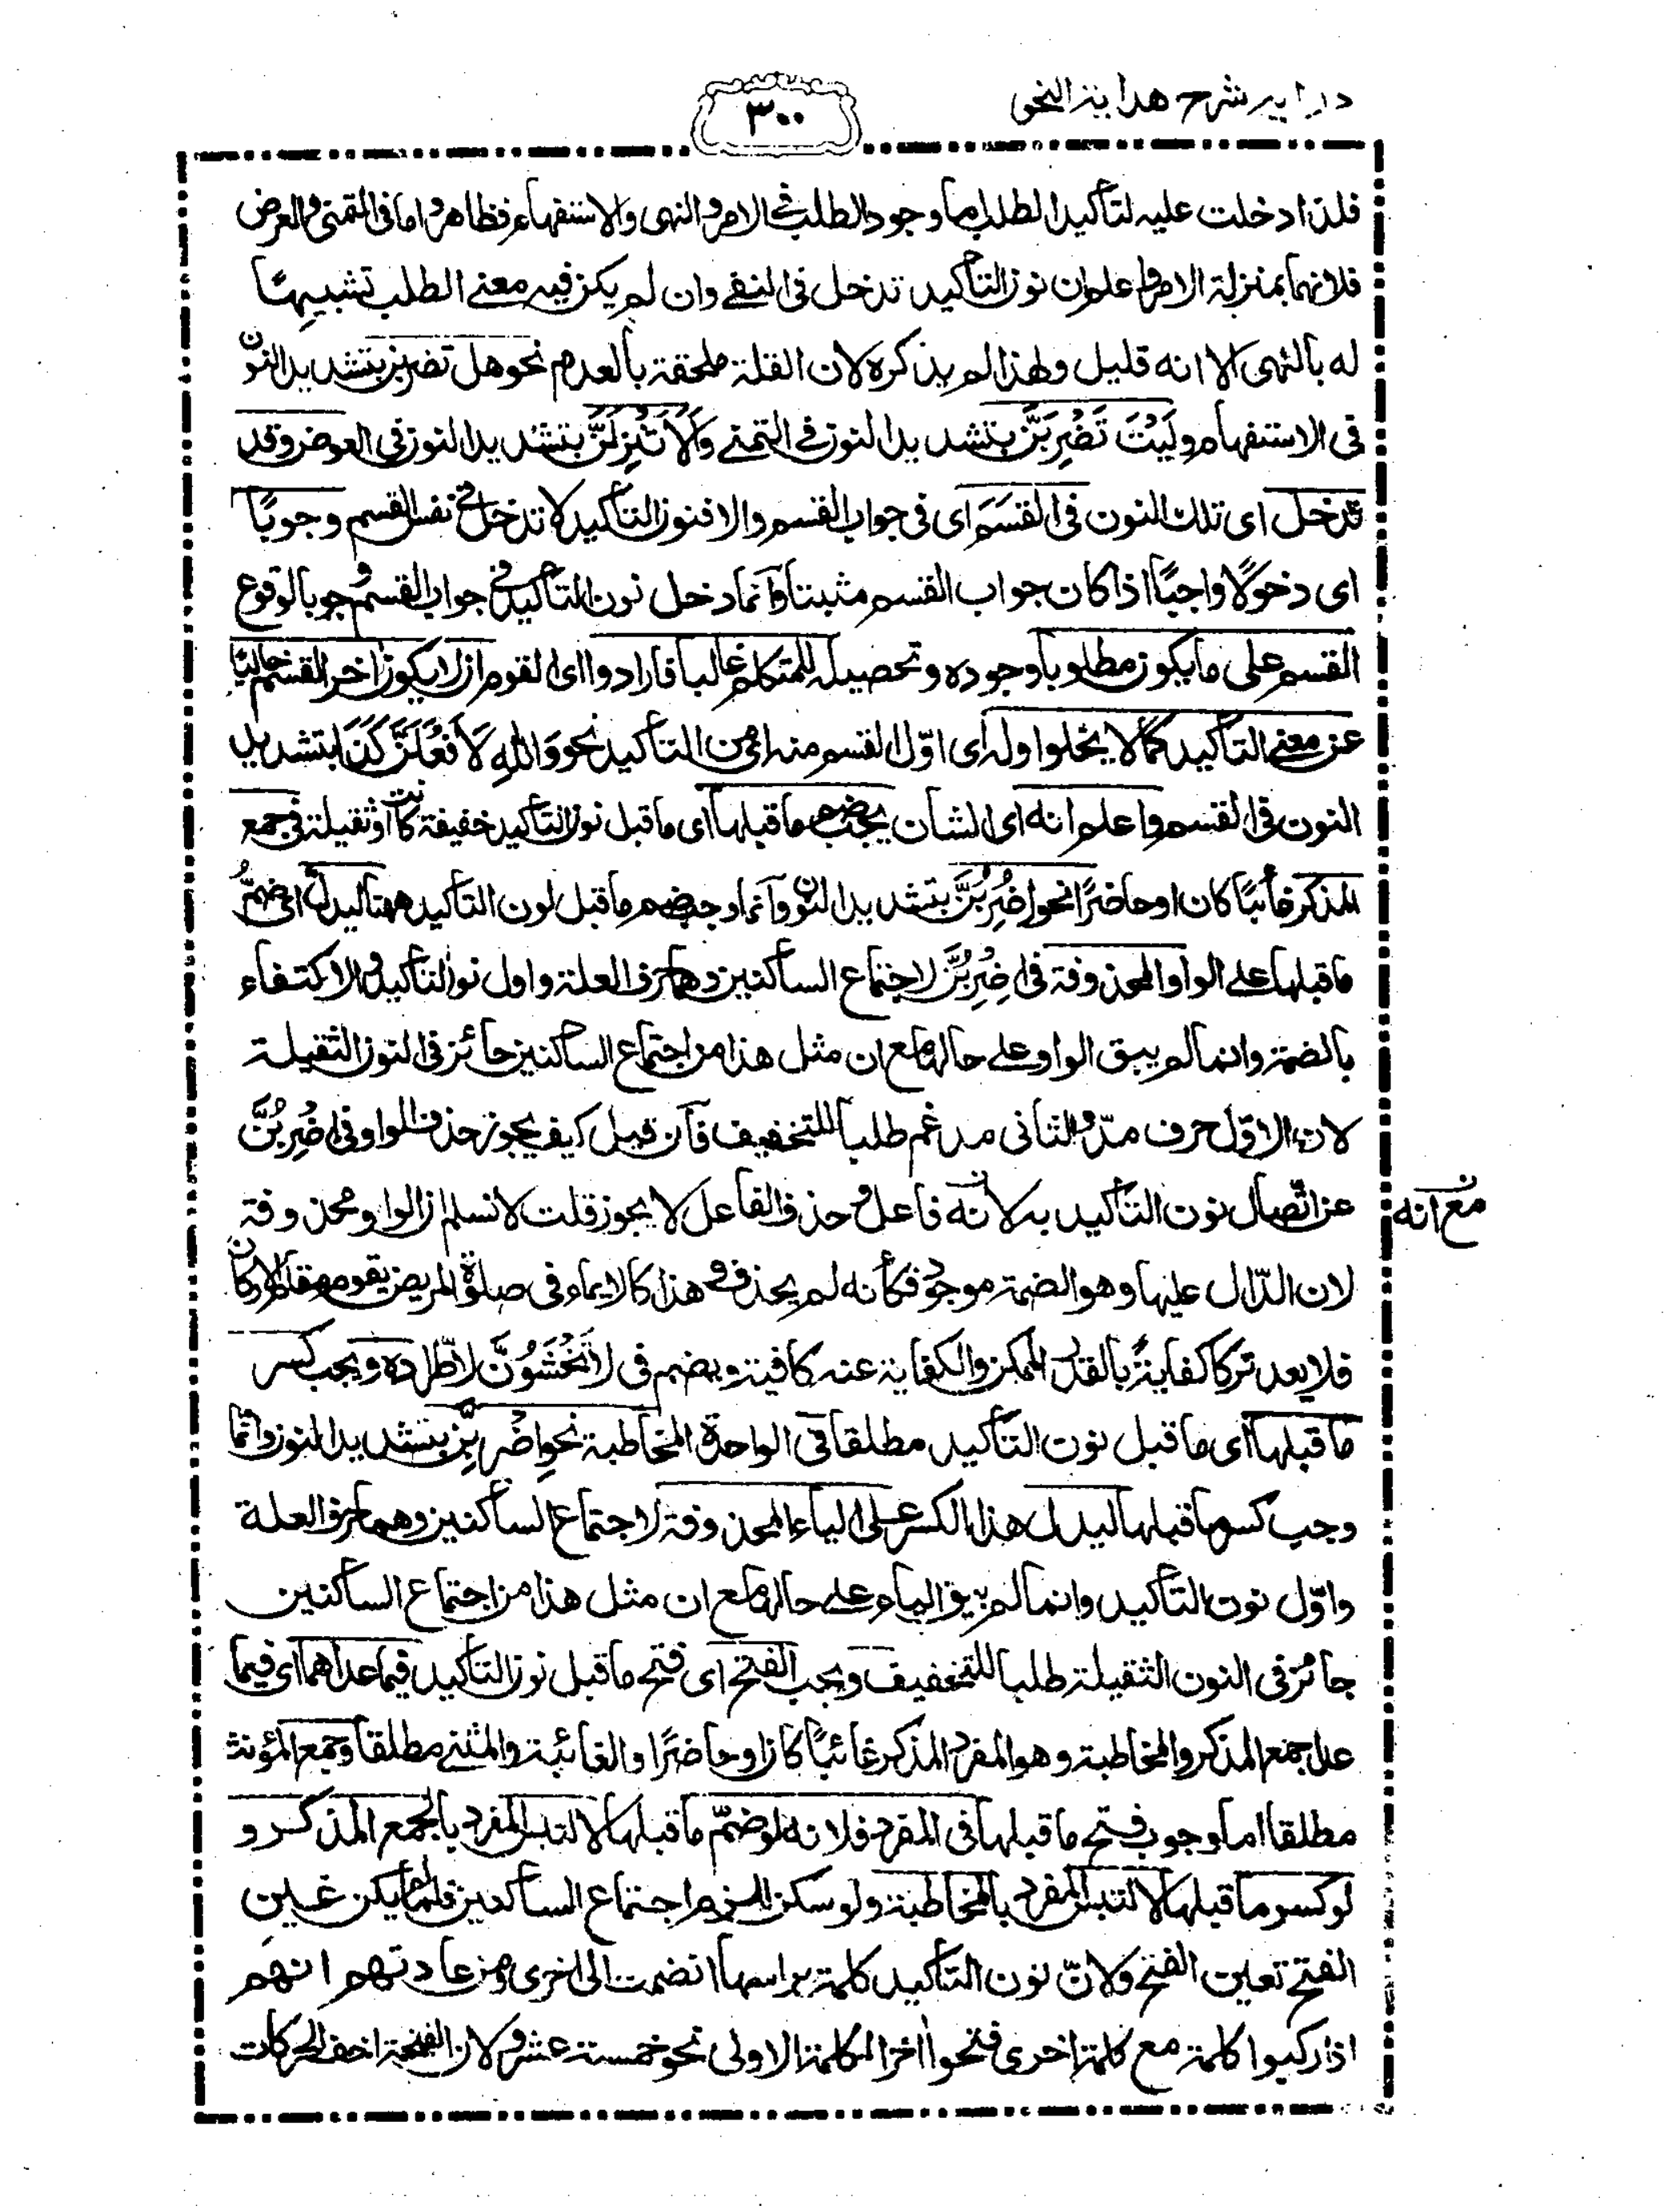 درایہ شرح هدایۃ النحو
۳۰۰
فلذا دخلت عليه لتأكيد الطلب اما وجود الطلب فى الامر والنهى والاستفهام فظاهر واما فى التمنى والعرض
فلانهما بمنزلة الامر واعلم ان نون التأكيد تدخل فى النفى وان لم يكن فيه معنى الطلب تشبيهًا
له بالنهى الا انه قليل ولهذا لم يذكره لان القلة ملحقة بالعدم نحو هل تضربن بتشديد النون
فى الاستفهام وليْتَ تَضْرِبَنَّ بتشديد النون فى التمنى وَاَلَا تَنْزِلَنَّ بتشديد النون فى العرض وقد
تدخل اى تلك النون فى القَسَمِ اى فى جواب القسم والا فنون التأكيد لا تدخل فى نفس القسم وجوبًا
اى دخولًا واجبًا اذا كان جواب القسم مثبتا وانما دخل نون التأكيد فى جواب القسم وجوبا لوقوع
القسم على ما يكون مطلوبا وجوده وتحصيله للمتكلم غالبا فارادوا اى القوم ان لا يكون اخر القسم خاليًا
عن معنى التأكيد كما لا يخلوا اوله اى اوّل القسم منه اى من التأكيد نحو وَاللهِ لَاَفْعَلَنَّ كَذَا بتشديد
النون فى القسم واعلم انه اى الشان يجب ضم ما قبلها اى ما قبل نون التأكيد خفيفة كانت او ثقيلة فى جمع
المذكر غائبًا كان او حاضرًا نحو اضْرِبُنَّ بتشديد النون وانما وجب ضم ما قبل نون التأكيد ههنا ليدل اى ضمُّ
ما قبلها على الواو المحذوفة فى اضْرِبُنَّ لاجتماع الساكنين وهما حرف العلة واول نون التأكيد والاكتفاء
بالضمة وانما لم يبق الواو على حالها مع ان مثل هذا من اجتماع الساكنين جائز فى النون الثقيلة
لان الاوّل حرف مدّ والثانى مدغم طلبا للتخفيف فان قيل كيف يجوز حذف الواو فى اضْرِبُنَّ
عن اتّصال نون التأكيد به لانّه فاعل وحذف الفاعل لا يجوز قلت لا نسلم ان الواو محذوفة
مع انه
لان الدّال عليها وهو الضمة موجود فكأنه لم يحذف وهذا كالايماء فى صلوة المريض يقوم مقام الاركان
فلا يعد تركا كفايةً بالقدر الممكن والكفاية عنه كافية ويضم فى لَاتَخْشَوُنَّ لاطّراده ويجب كسر
ما قبلها اى ما قبل نون التأكيد مطلقا فى الواحدة المخاطبة نحو اضْرِبِنَّ بتشديد النون وانّما
وجب كسر ما قبلها ليدل هذا الكسر على الياء المحذوفة لاجتماع الساكنين وهما حرف العلة
واوّل نون التأكيد وانما لم يبق الياء على حالها مع ان مثل هذا من اجتماع الساكنين
جائز فى النون الثقيلة طلبا للتخفيف ويجب الفتح اى فتح ما قبل نون التأكيد فيما عداهما اى فيما
عدا جمع المذكر والمخاطبة وهو المفرد المذكر غائبًا كان او حاضرًا والغائبة والمثنى مطلقا وجمع المؤنث
مطلقا اما وجوب فتح ما قبلها فى المفرد فلانه لو ضمّ ما قبلها لالتبس المفرد بالجمع المذكر و
لو كسر ما قبلها لالتبس المفرد بالمخاطبة ولو سكن للزم اجتماع الساكنين فلما لم يكن غير
الفتح تعين الفتح ولانّ نون التأكيد كلمة براسها انضمت الى اخرى ومن عادتهم انهم
اذا ركبوا كلمة مع كلمة اخرى فتحوا اخر الكلمة الاولى نحو خمسة عشر ولان الفتحة اخف الحركات